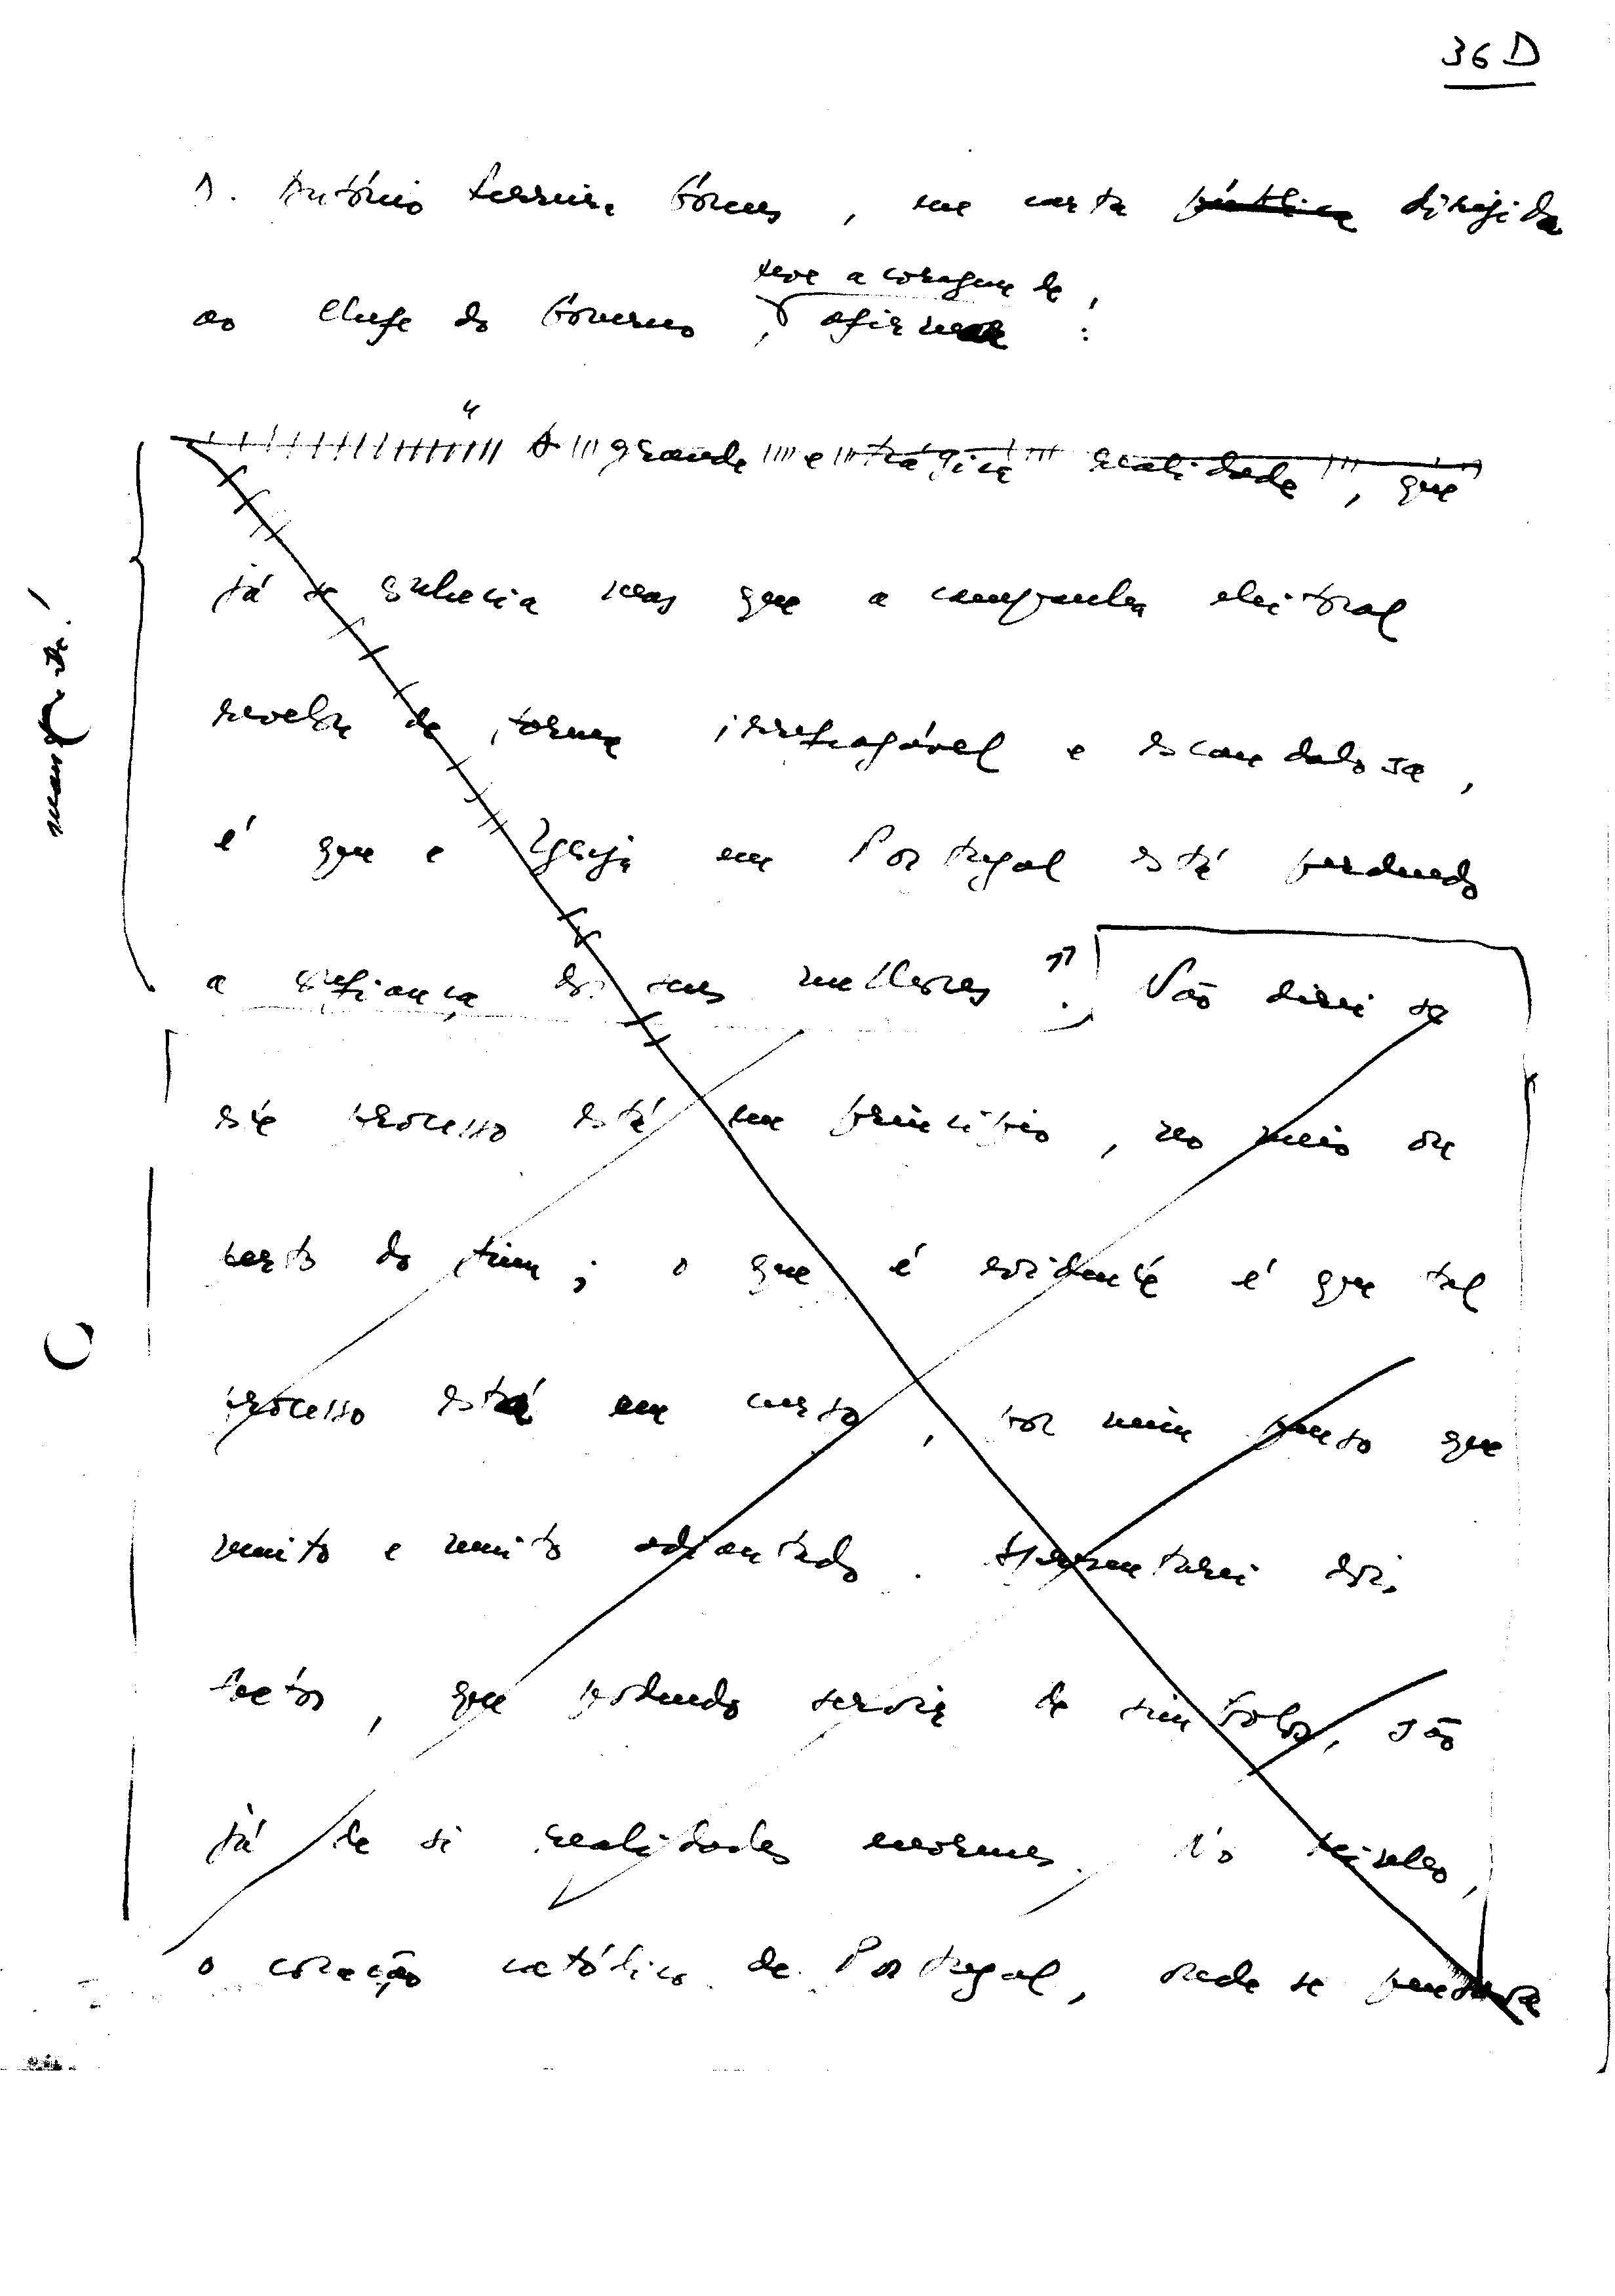 36 D
D. António Ferreira Gomes, em carta pública dirigida
teve a coragem de
ao Chefe do Govêrno, afirmar:
"A grande e trágica realidade, que
já se conhecia mas que a campanha eleitoral
revelou de forma irrefragável e escandalosa,
é que a Igreja em Portugal está perdendo
a confiança dos seus melhores". Não direi se
este processo está em princípio, no meio ou
perto do fim; o que é evidente é que tal
processo está em curso, por mim penso que
muito e muito adiantado. Apresentarei dois
factos, que podendo servir de símbolos, são
já de si realidades enormes. No Minho,
o coração católico de Portugal, onde se pensava